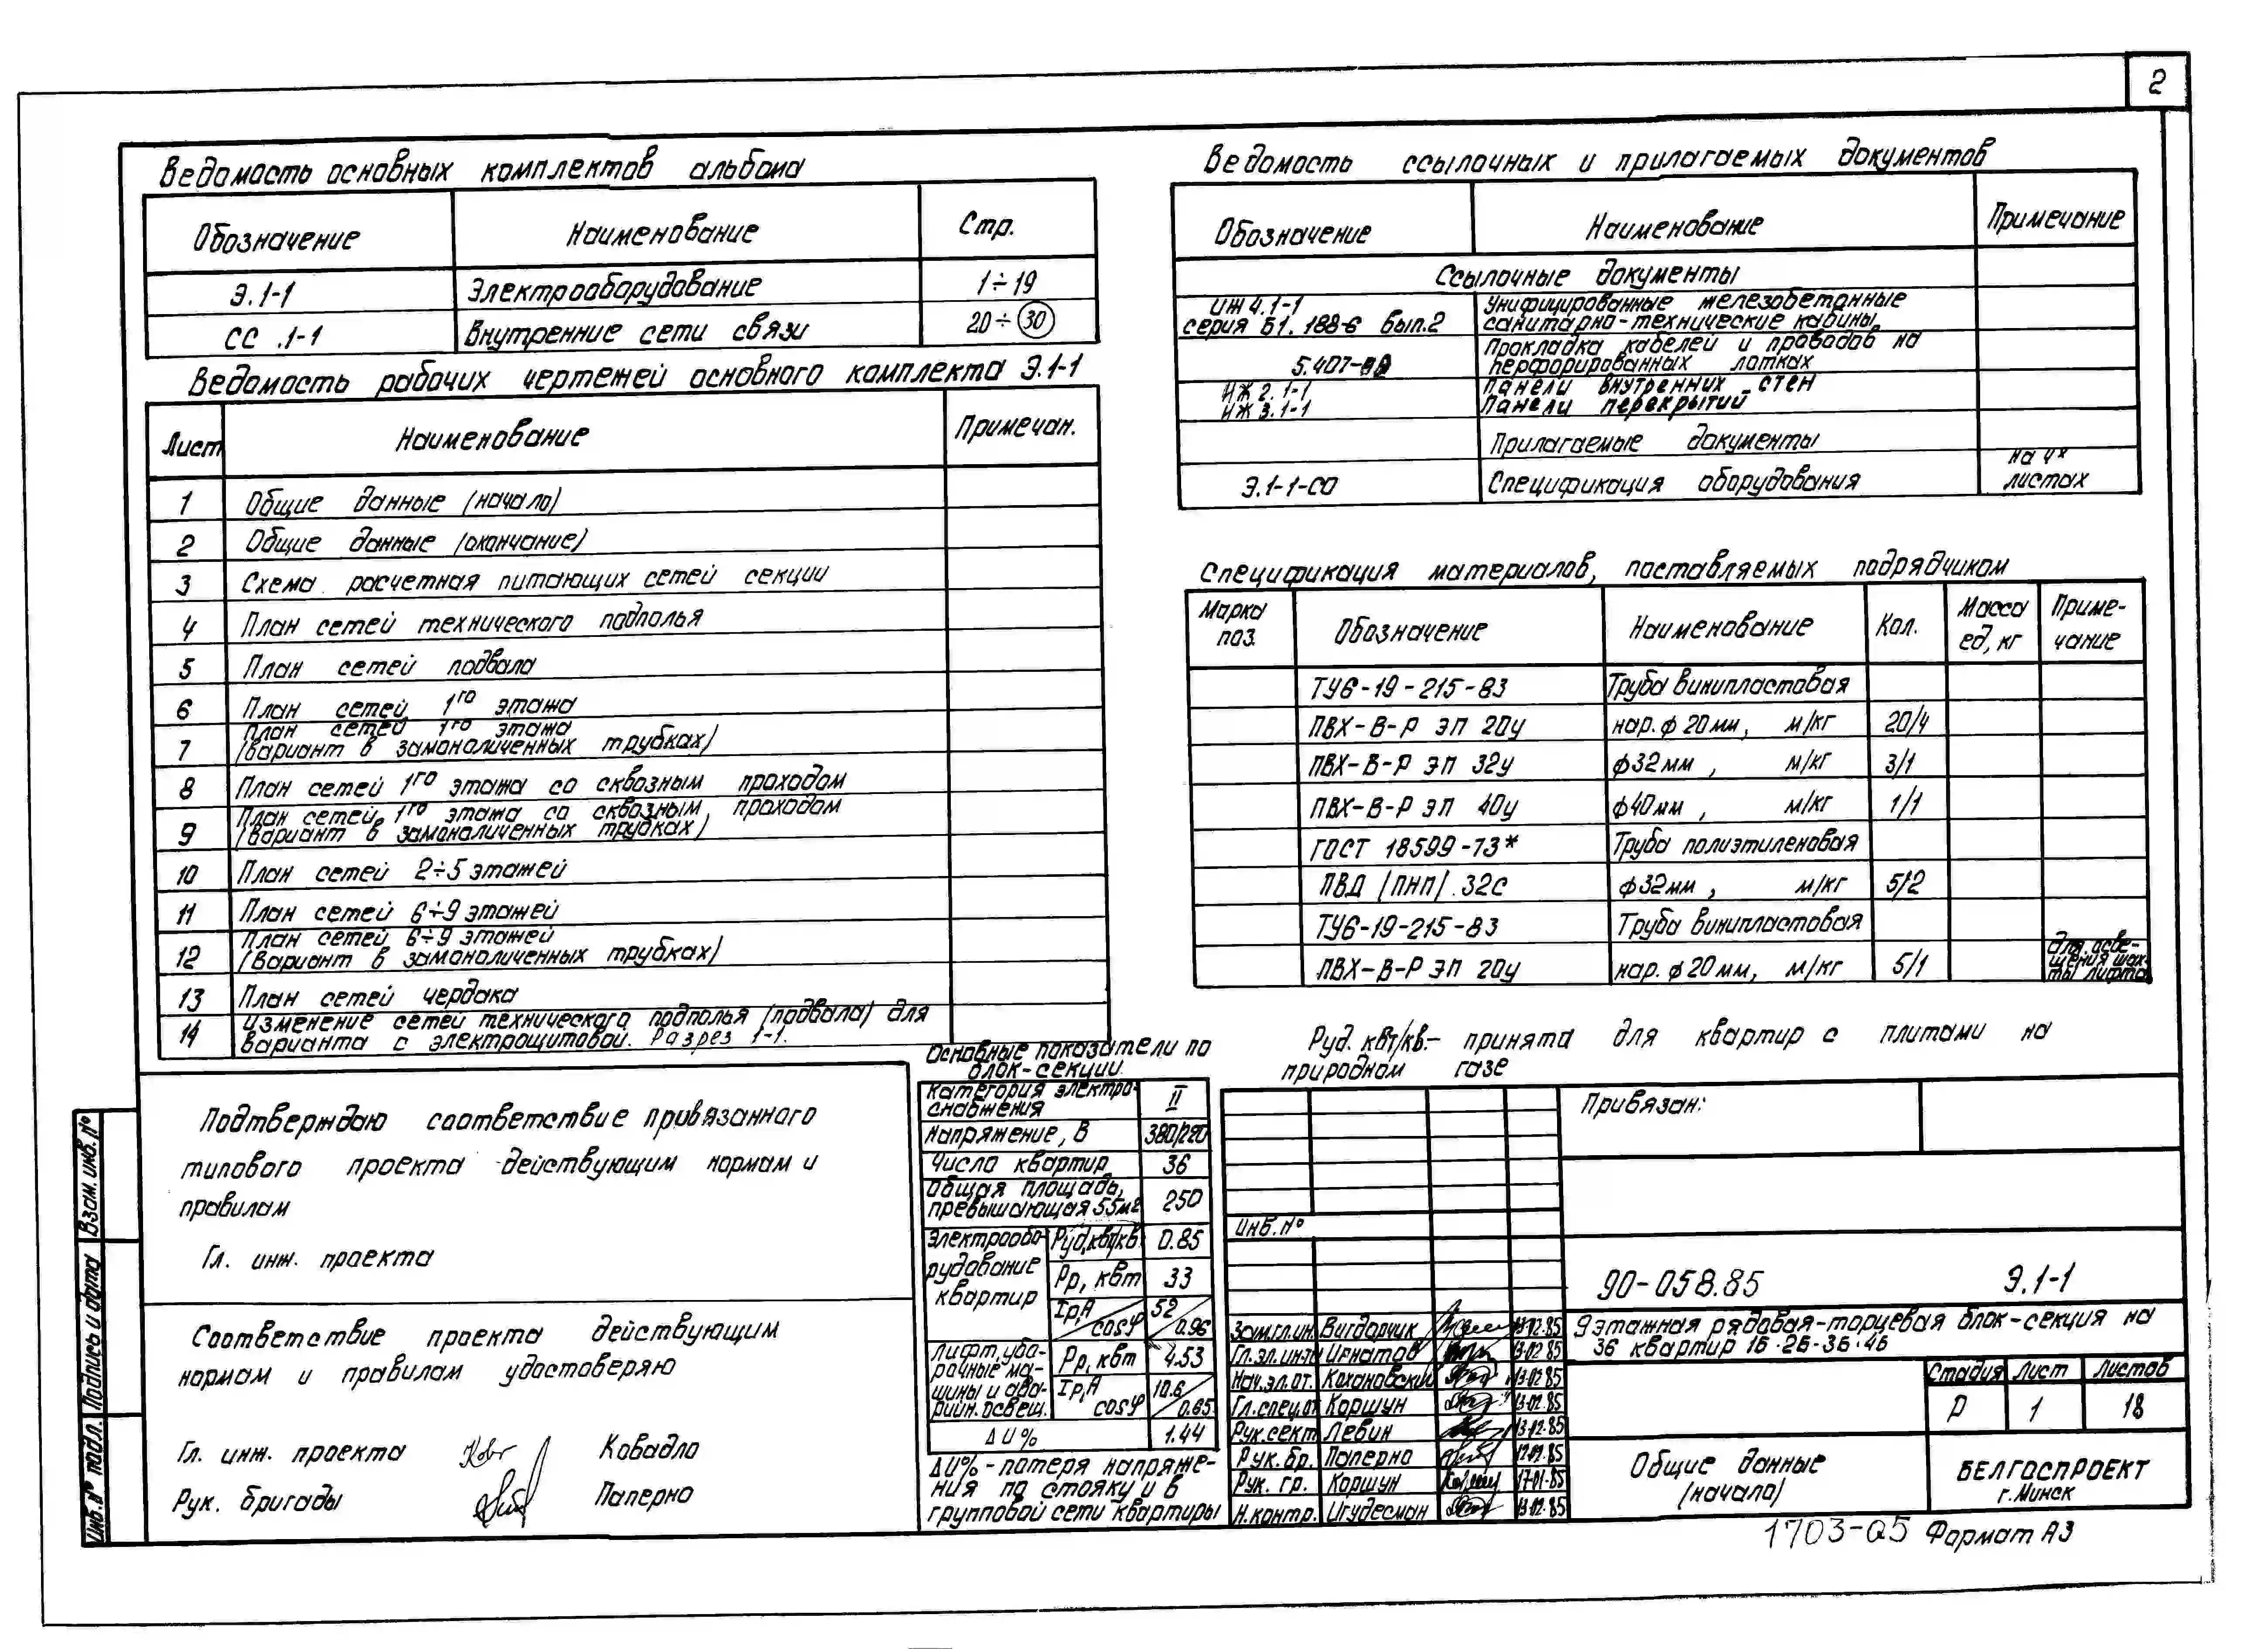 2
Ведомость основных комплектов альбома
Обозначение Наименование Стр.
Э.1-1 Электрооборудование 1÷19
СС .1-1 Внутренние сети связи 20÷30
Ведомость рабочих чертежей основного комплекта Э.1-1
Лист Наименование Примечан.
1 Общие данные (начало)
2 Общие данные (окончание)
3 Схема расчетная питающих сетей секции
4 План сетей технического подполья
5 План сетей подвала
6 План сетей 1го этажа
7 План сетей 1го этажа
(вариант в замоноличенных трубках)
8 План сетей 1го этажа со сквозным проходом
9 План сетей 1го этажа со сквозным проходом
(вариант в замоноличенных трубках)
10 План сетей 2÷5 этажей
11 План сетей 6÷9 этажей
12 План сетей 6÷9 этажей
(вариант в замоноличенных трубках)
13 План сетей чердака
14 Изменение сетей технического подполья (подвала) для
варианта с электрощитовой. Разрез 1-1.
Ведомость ссылочных и прилагаемых документов
Обозначение Наименование Примечание
Ссылочные документы
ИЖ 4.1-1 Унифицированные железобетонные
серия Б1.188-6 вып.2 санитарно-технические кабины
Прокладка кабелей и проводов на
5.407- перфорированных лотках
ИЖ 2.1-1 Панели внутренних стен
ИЖ 3.1-1 Панели перекрытий
Прилагаемые документы
Э.1-1-СО Спецификация оборудования на 4х
листах
Спецификация материалов, поставляемых подрядчиком
Марка поз. Обозначение Наименование Кол. Масса ед, кг Приме-
чание
ТУ6-19-215-83 Труба винипластовая
ПВХ-В-Р ЭП 20у нар. ф 20мм, м/кг 20/4
ПВХ-В-Р ЭП 32у ф32мм, м/кг 3/1
ПВХ-В-Р ЭП 40у ф40мм, м/кг 1/1
ГОСТ 18599-73* Труба полиэтиленовая
ПВД (ПНП) .32с ф32мм, м/кг 5/2
ТУ6-19-215-83 Труба винипластовая
ПВХ-В-Р ЭП 20у нар. ф20мм, м/кг 5/1 Для осве-
щения шах-
ты лифта
Руд. квт/кв.- принята для квартир с плитами на
природном газе
Подтверждаю соответствие привязанного
типового проекта действующим нормам и
правилам
Гл. инж. проекта
Соответствие проекта действующим
нормам и правилам удостоверяю
Гл. инж. проекта Ковадло
Рук. бригады Паперно
Основные показатели по
блок-секции.
Категория электро-
снабжения II
Напряжение, В 380/220
Число квартир 36
Общая площадь,
превышающая 55м2 250
Электрообо-
рудование
квартир
Руд, квт/кв. 0.85
Рр, квт 33
Iр,А cosφ 52 0.96
Лифт, убо-
рочные ма-
шины и ава-
рийн. освещ.
Рр, квт 4.53
Iр,А cosφ 10.6 0.65
ΔU% 1.44
ΔU% - потеря напряже-
ния по стояку и в
групповой сети квартиры
Привязан:
Инв. №
90-058.85 Э.1-1
Зам.гл.ин. Вигдорчик 13.02.85
Гл.эл.инж. Игнатов 13.02.85
Нач.эл.от. Кохановский 13.02.85
Гл.спец.от Коршун 13.02.85
Рук.сект. Левин 13.02.85
Рук.бр. Паперно 12.02.85
Рук. гр. Коршун 17.01.85
Н.контр. Игудесман 13.02.85
9этажная рядовая-торцевая блок-секция на
36 квартир 1б-2б-3б-4б
Стадия Лист Листов
Р 1 18
Общие данные
(начало)
БЕЛГОСПРОЕКТ
г. Минск
Взам. инв. №
Подпись и дата
Инв. № подл.
1703-05 Формат А3